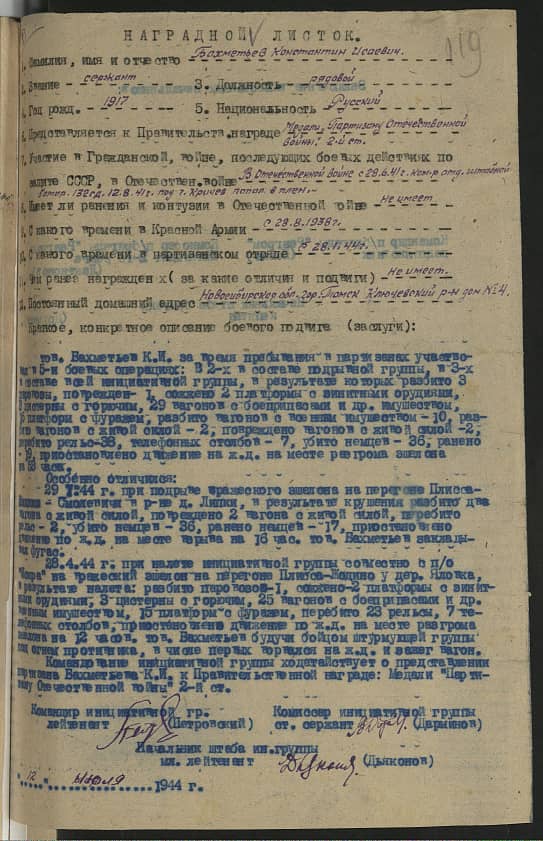 119
НАГРАДНОЙ ЛИСТОК.
1. Фамилия, имя и отчество Бахметьев Константин Исаевич.
2. Звание сержант 3. Должность рядовой
4. Год рожд. 1917 5. Национальность Русский
6. Представляется к Правительств.награде Медали "Партизану Отечественной
Войны" 2-й ст.
7. Участие в Гражданской, войне, последующих боевых действиях по
защите СССР, в Отечествен.войне В Отечественной войне с 28.6.41г. ком-р отд. штабной
батар. 132сд. 12.8.41г. под г. Кричев попал в плен.
8. Имеет ли ранения и контузии в Отечественной войне Не имеет
9. С какого времени в Красной Армии С 28.8.1938г.
10. С какого времени в партизанском отряде С 28.1.44г.
11. Чем ранее награжден х( за какие отличия и подвиги) Не имеет.
12. Постоянный домашний адрес Новосибирская обл. гор. Томск Ключевский р-н дом №4.
Краткое, конкретное описание боевого подвига (заслуги):
тов. Бахметьев К.И. за время пребывания в партизанах участво-
в 5-и боевых операциях: В 2-х в составе подрывной группы, в 3-х
в составе всей инициативной группы, в результате которых разбито 3
паровозы, поврежден- 1, сожжено 2 платформы с зенитными орудиями,
цистерны с горючим, 29 вагонов с боеприпасами и др. имуществом,
платформ с фуражем, разбито вагонов с военным имуществом - 10, раз-
вагонов с живой силой - 2, повреждено вагонов с живой силой -2,
перебито рельс-38, телефонных столбов - 7, убито немцев - 36, ранено
19, приостановлено движение на ж.д. на месте разгрома эшелона
на 53 часа.
Особенно отличился:
29 44 г. при подрыве вражеского эшелона на перегоне Плисса-
- Смолевичи в р-не д. Липки, в результате крушения разбито два
вагона с живой силой, повреждено 2 вагона с живой силой, перебито
рельс - 2, убито немцев - 36, ранено немцев - 17, приостановлено
движение по ж.д. на месте взрыва на 16 час. тов. Бахметьев заклады-
вал фугас.
28.4.44 г. при налете инициативной группы совместно с п/о
на вражеский эшелон на перегоне Плисса-Жодино у дер. Яловка,
в результате налета: разбито паровозов-1, сожжено-2 платформы с зенит-
ными орудиями, 3 цистерны с горючим, 25 вагонов с боеприпасами и др.
военным имуществом, 15 платформ с фуражем, перебито 23 рельсы, 7 те-
лефонных столбов, приостановлено движение по ж.д. на месте разгрома
эшелона на 12 часов. тов. Бахметьев будучи бойцом штурмующей группы
под огнем противника, в числе первых ворвался на ж.д. и зажег вагон.
Командование инициативной группы ходатайствует о представлении
партизана Бахметьева К.И. к Правительственной награде: Медали "Парти-
зану Отечественной войны" 2-й ст.
Командир инициативной гр. Комиссар инициативной группы
лейтенант (Петровский) ст. сержант (Дарьинов)
Начальник штаба ин.группы
мл. лейтенант (Дьяконов)
"12" июля 1944 г.